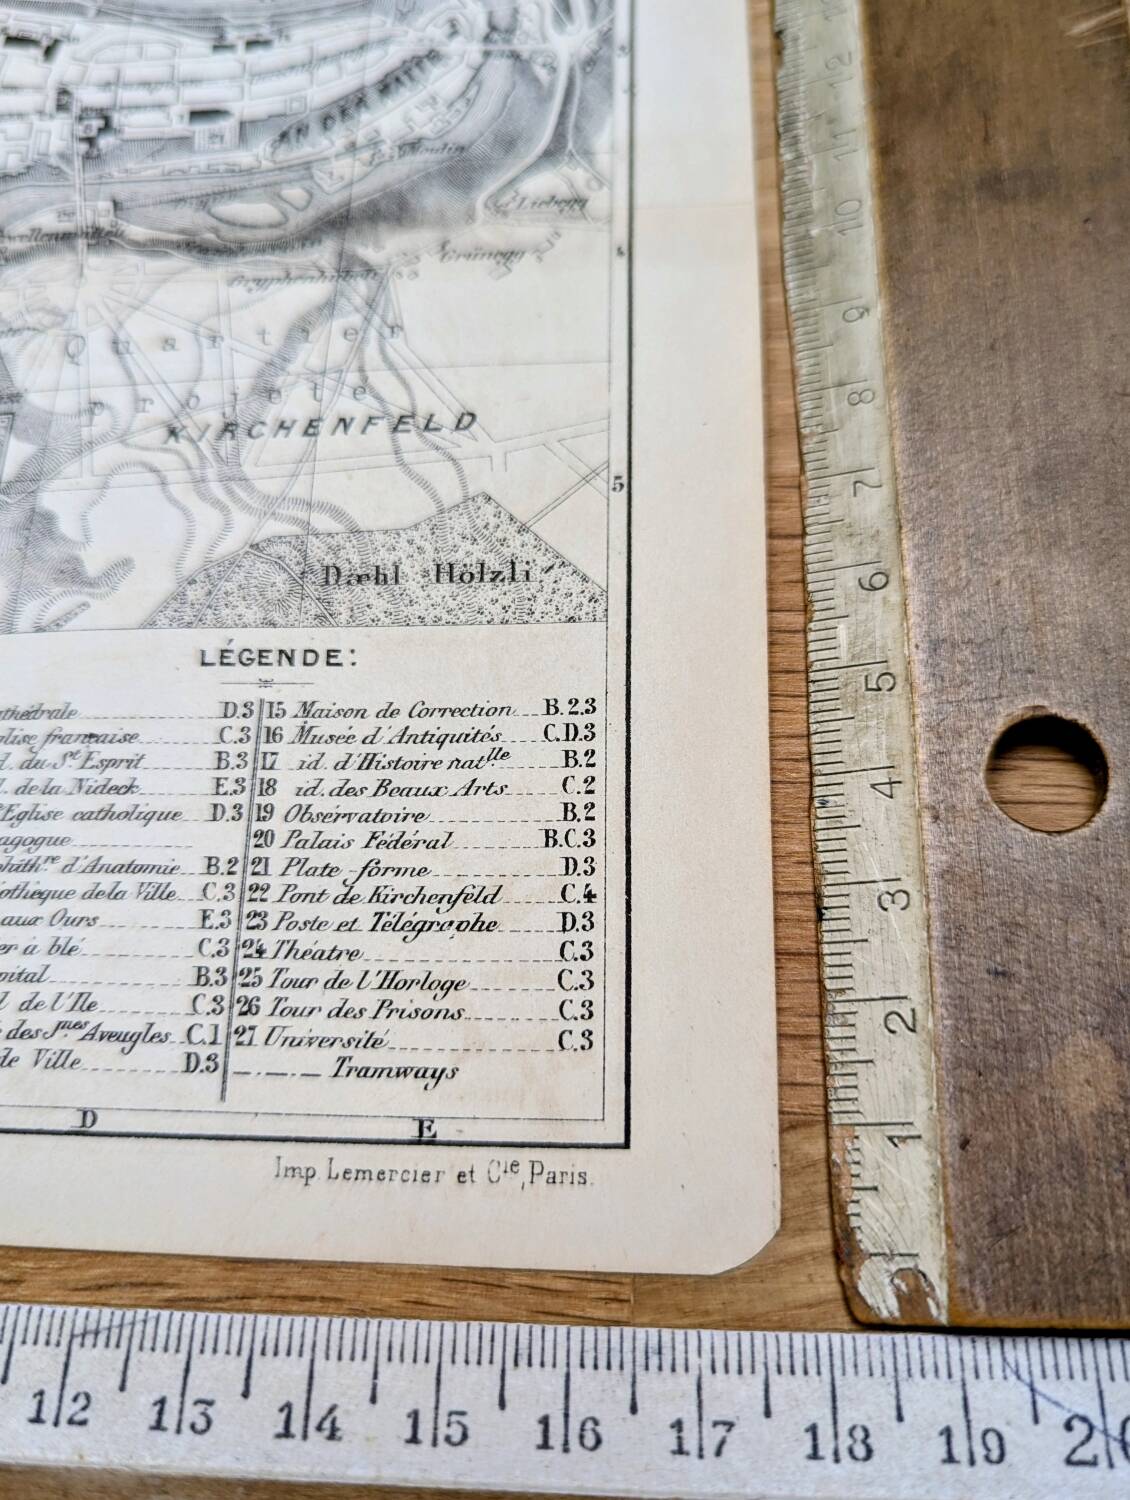 AN DER MATTE
Liebegg
Grünegg
4
Gryphenhübeli
Quartier
projeté
KIRCHENFELD
5
Dæhl Hölzli
LÉGENDE:
D.3 15 Maison de Correction B.2.3
française C.3 16 Musée d'Antiquités C.D.3
du St Esprit B.3 17 id. d'Histoire natlle B.2
de la Nideck E.3 18 id. des Beaux Arts C.2
Eglise catholique D.3 19 Observatoire B.2
20 Palais Fédéral B.C.3
d'Anatomie B.2 21 Plate-forme D.3
de la Ville C.3 22 Pont de Kirchenfeld C.4
aux Ours E.3 23 Poste et Télégraphe D.3
à blé C.3 24 Théatre C.3
B.3 25 Tour de l'Horloge C.3
de l'Ile C.3 26 Tour des Prisons C.3
des Jnes Aveugles C.1 27 Université C.3
de Ville D.3 Tramways
D E
Imp. Lemercier et Cie, Paris.
12
11
10
9
8
7
6
5
4
3
2
1
12 13 14 15 16 17 18 19